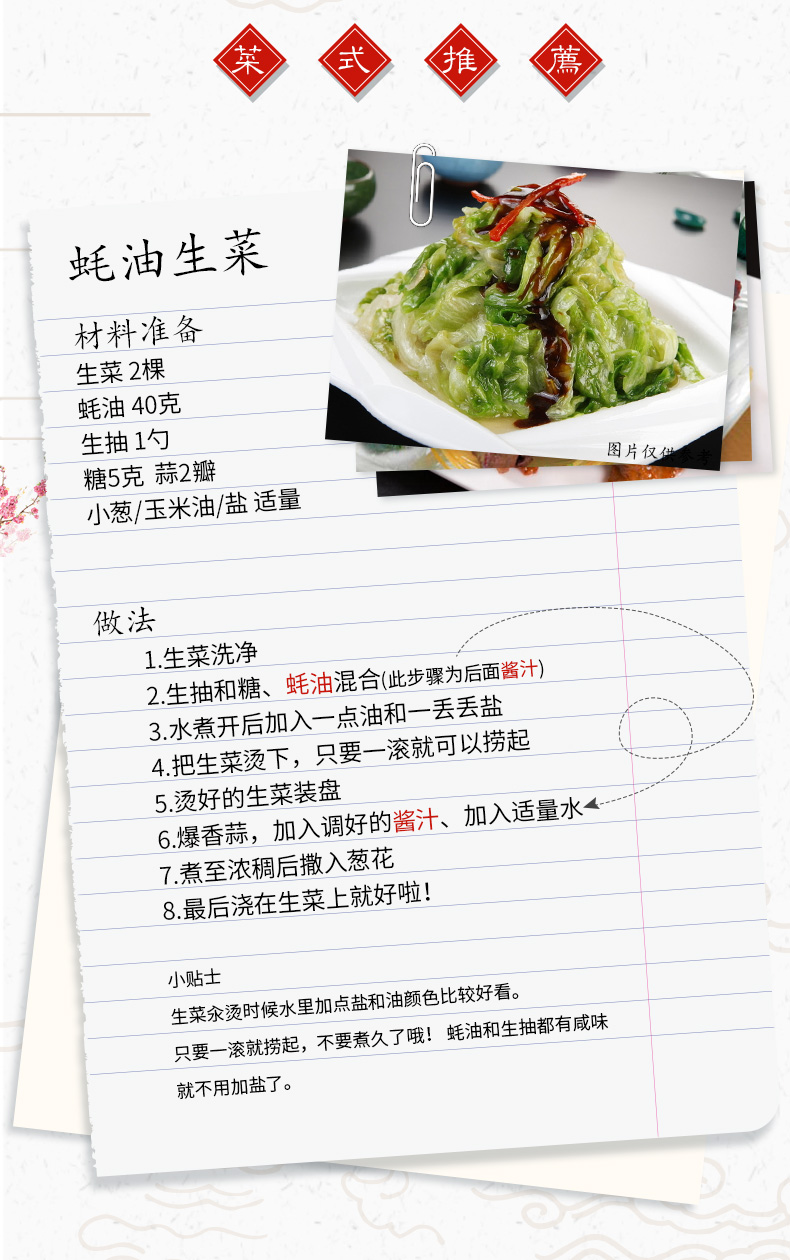 菜式推薦
蚝油生菜
材料准备
生菜 2棵
蚝油 40克
生抽 1勺
糖5克 蒜2瓣
小葱/玉米油/盐 适量
图片仅供参考
做法
1.生菜洗净
2.生抽和糖、蚝油混合(此步骤为后面酱汁)
3.水煮开后加入一点油和一丢丢盐
4.把生菜烫下，只要一滚就可以捞起
5.烫好的生菜装盘
6.爆香蒜，加入调好的酱汁、加入适量水
7.煮至浓稠后撒入葱花
8.最后浇在生菜上就好啦！
小贴士
生菜汆烫时候水里加点盐和油颜色比较好看。
只要一滚就捞起，不要煮久了哦！ 蚝油和生抽都有咸味
就不用加盐了。